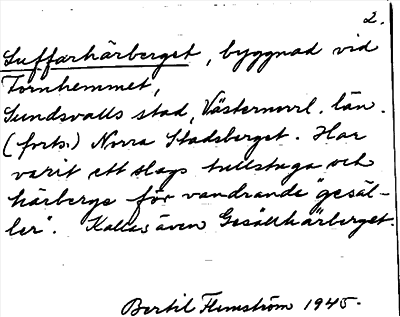 2.
Luffarhärberget, byggnad vid
Tornhemmet,
Sundsvalls stad, Västernorrl. län.
(forts.) Norra Stadsberget. Har
varit ett slags tullstuga och
härberge för vandrande "gesäl-
ler". Kallas även Gesällhärberget.
Bertil Flemström 1945.